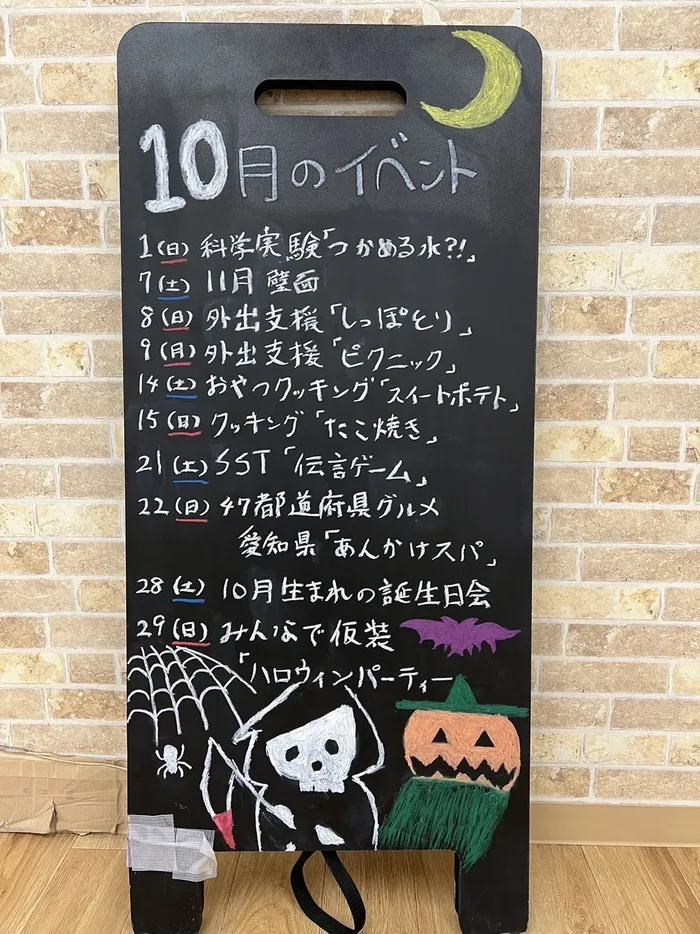 10月のイベント
1(日) 科学実験「つかめる水?!」
7(土) 11月 壁面
8(日) 外出支援「しっぽとり」
9(月) 外出支援「ピクニック」
14(土) おやつクッキング「スイートポテト」
15(日) クッキング「たこ焼き」
21(土) SST「伝言ゲーム」
22(日) 47都道府県グルメ
愛知県「あんかけスパ」
28(土) 10月生まれの誕生日会
29(日) みんなで仮装
「ハロウィンパーティー